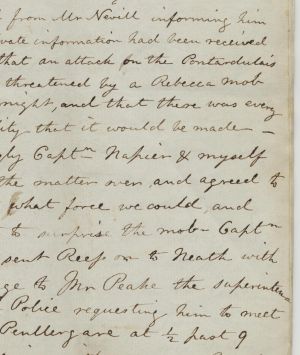 from Mr Nevill informing him
vate information had been received
that an attack on the Pontardulais
threatened by a Rebecca mob
night, and that there was every
ility that it would be made –
gly Captn Napier & myself
the matter over, and agreed to
what force we could, and
to surprise the mob – Captn
sent Rees on to Neath with
ge to Mr Peake the superinten
Police requesting him to meet
Penllergare at ½ past 9